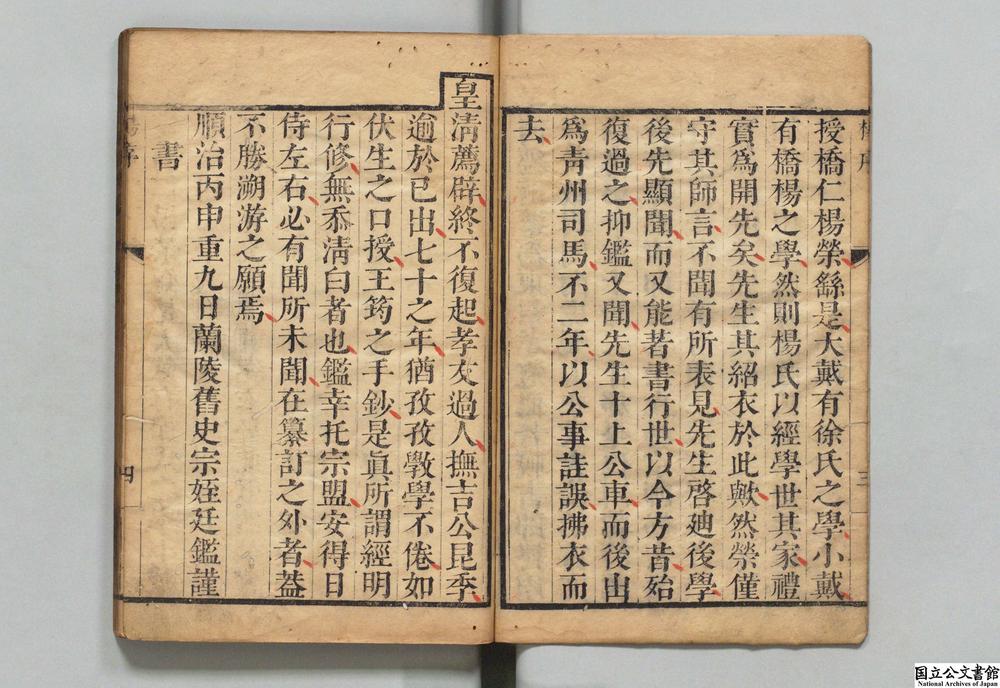 授橋仁楊榮繇是大戴有徐氏之學小戴
有橋楊之學然則楊氏以經學世其家禮
實爲開先矣先生其紹衣於此歟然榮僅
守其師言不聞有所表見先生啓廸後學
後先顯聞而又能著書行世以今方昔殆
復過之抑鑑又聞先生十上公車而後出
爲靑州司馬不二年以公事詿誤拂衣而
去
三
皇淸薦辟終不復起孝友過人撫吉公昆季
逾於已出七十之年猶孜孜斅學不倦如
伏生之口授王筠之手鈔是眞所謂經明
行修無忝淸白者也鑑幸托宗盟安得日
侍左右必有聞所未聞在纂訂之外者葢
不勝溯游之願焉
順治丙申重九日蘭陵舊史宗姪廷鑑謹
書
四
国立公文書館
National Archives of Japan